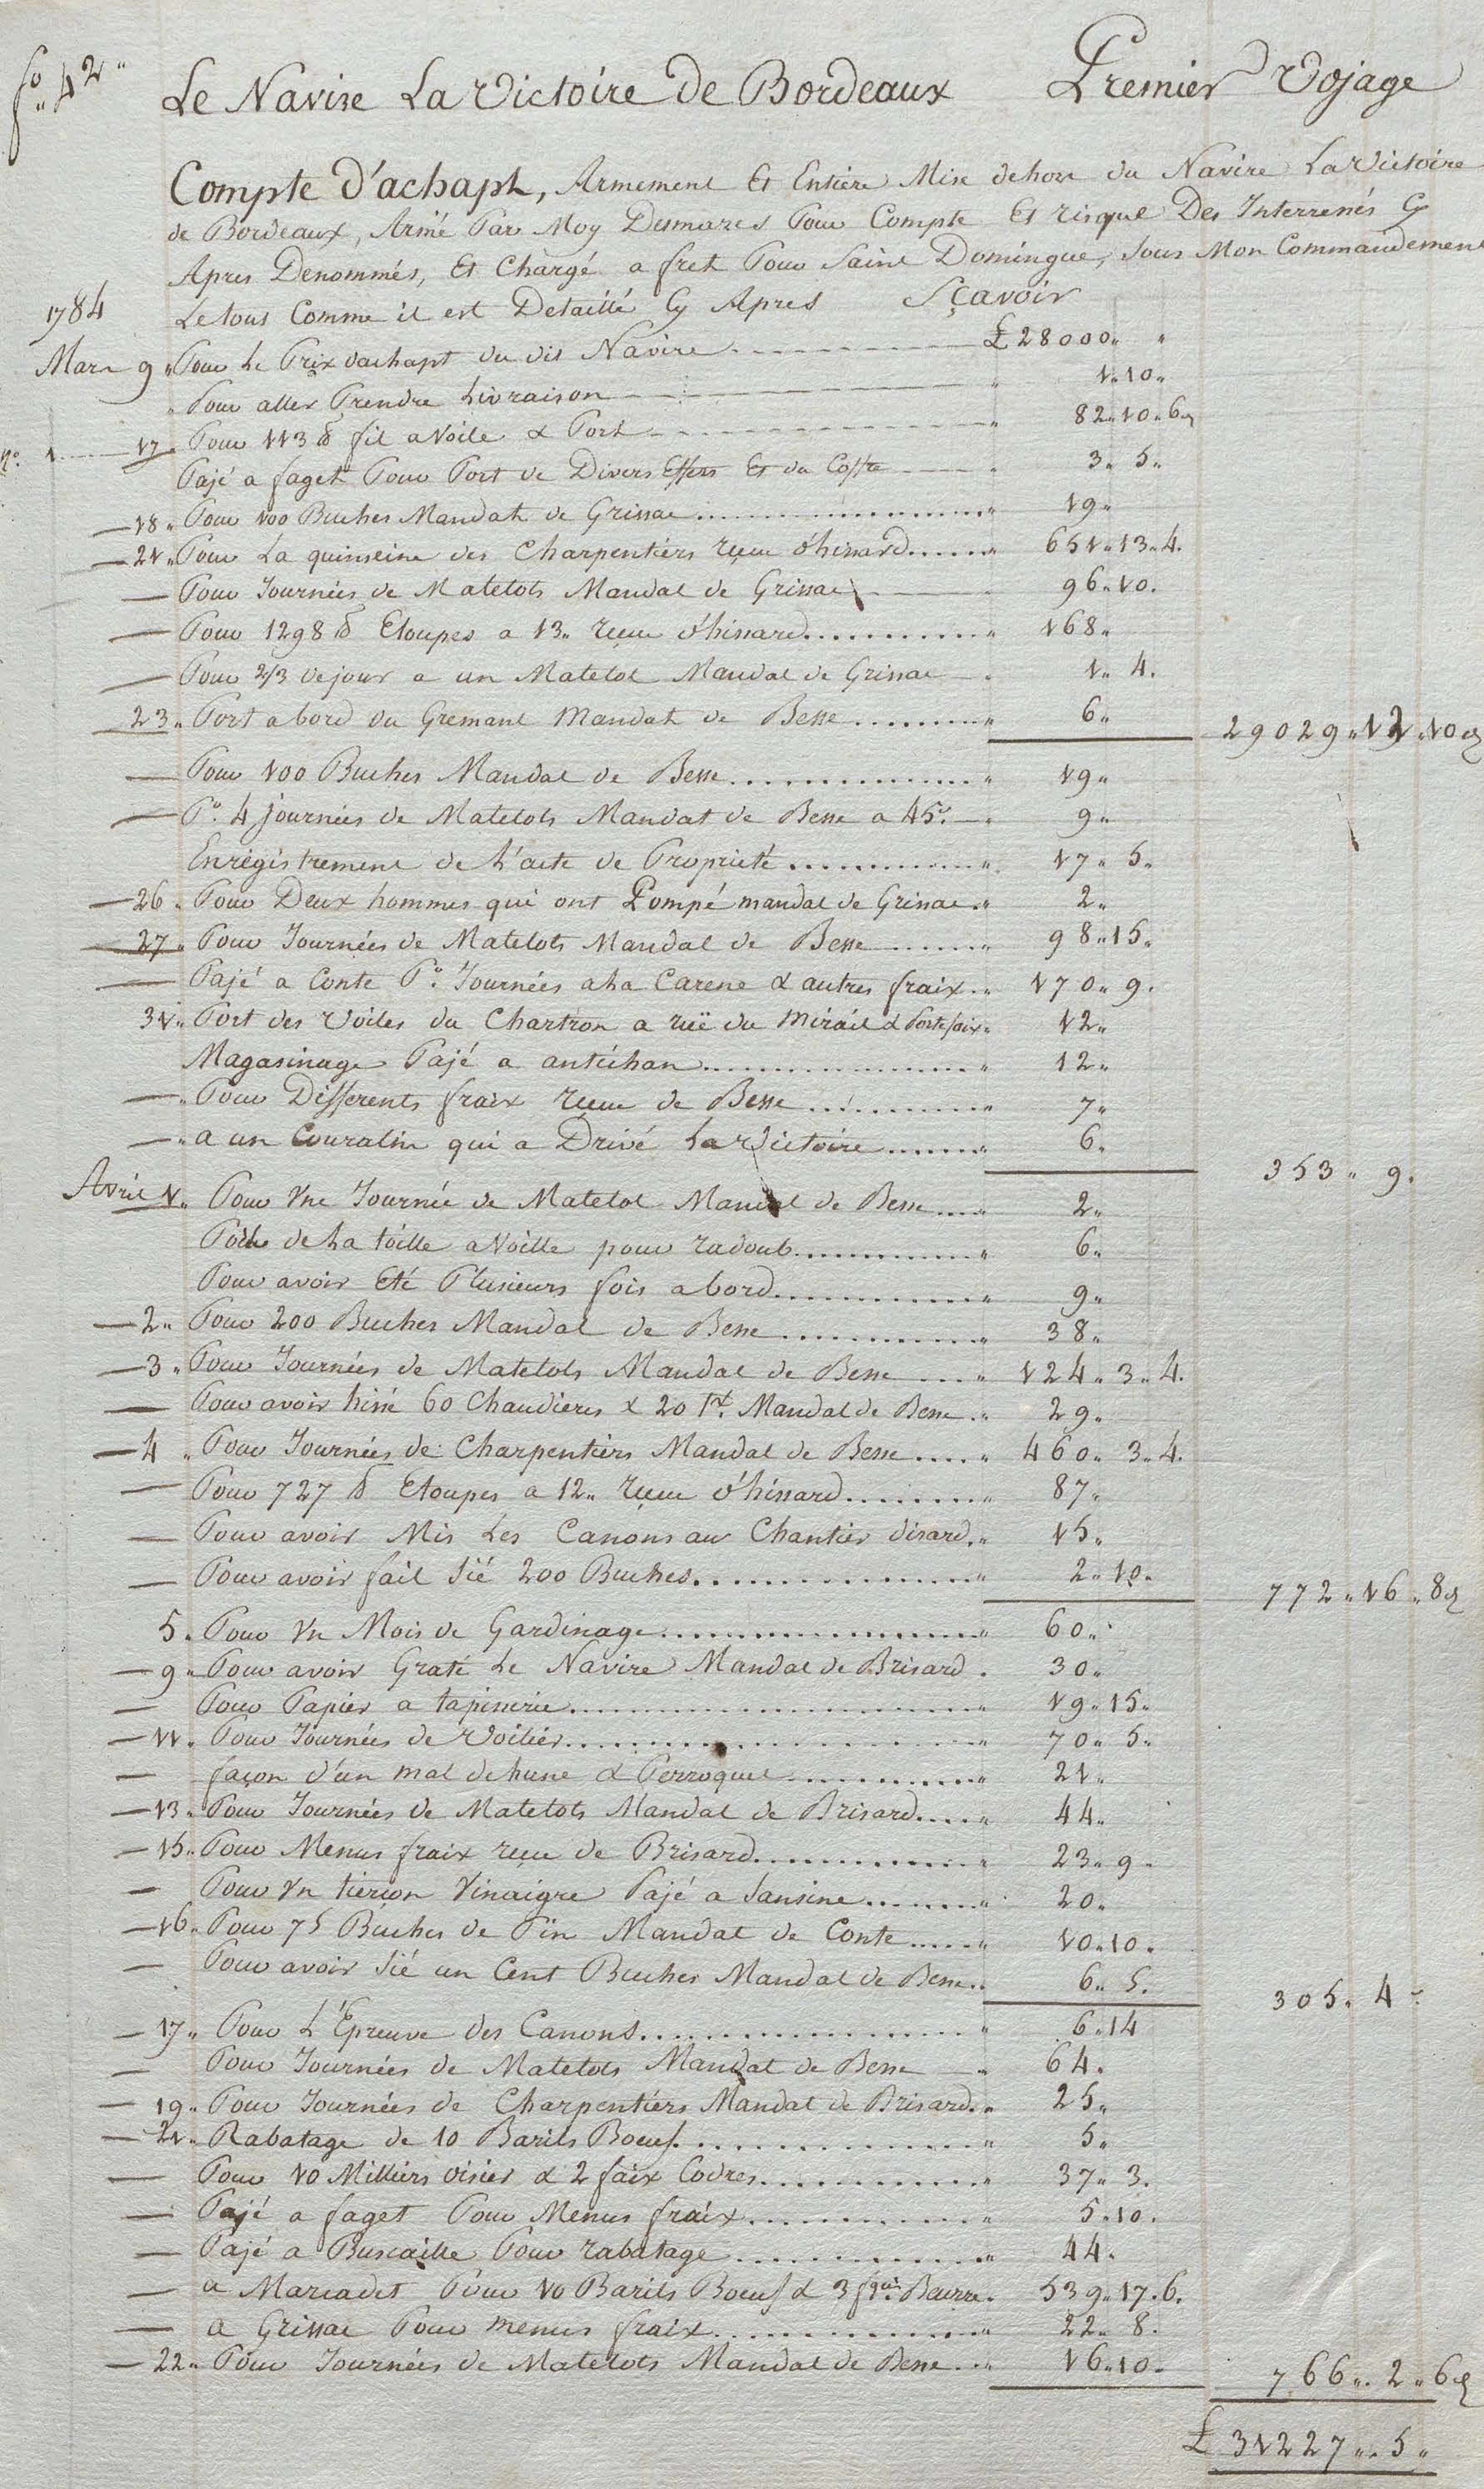 fo. 42"
Le Navire La Victoire de Bordeaux Premier Voyage
Compte d'achapt, Armement Et Entiere Mise dehors du Navire La Victoire
de Bordeaux, Armé Par Moy Desmares Pour Compte Et risque Des Interressés Cy
Apres Denommés, Et Chargé a fret Pour Saint Domingue, sous Mon Commandement
Le tout Comme il est Detaillé Cy Apres Sçavoir
1784
Mars 9 Pour Le Prix dachapt du dit Navire £ 28000 " "
Pour aller Prendre Livraison 1 " 10 "
No. 1 17 Pour 113 ℔ fil a Voile & Port 82 " 10 " 6
Pajé a faget Pour Port de Divers Effets Et du Coffre 3 " 5 "
18 " Pour 100 Buches Mandat de Grissac 19 "
21 " Pour La quinseine des Charpentiers reçeu d'hissard 651 " 13 " 4
Pour Journées de Matelots Mandat de Grissac 96 " 10
Pour 1298 ℔ Etoupes a 13 " reçeu d'hissard 168 "
Pour 2/3 de jour a un Matelot Mandat de Grissac 1 " 4
23 " Port a bord du Gremant Mandat de Besse 6 "
29029 " 12 " 10
Pour 100 Buches Mandat de Besse 19 "
Po. 4 journées de Matelots Mandat de Besse a 45s. 9 "
Enrégistrement de L'acte de Proprieté 17 " 5 "
26 Pour Deux hommes qui ont Pompé mandat de Grissac 2 "
27 " Pour Journées de Matelots Mandat de Besse 98 " 15 "
Pajé a Conte Po. Journées a La Carene & autres fraix 170 " 9
31 " Port des Voiles du Chartron a ruë du Mirail & Portefaix 12 "
Magasinage Pajé a antichan 12 "
Pour Differents fraix reçeu de Besse 7 "
a un Couralin qui a Drivé La Victoire 6 "
353 " 9
Avril 1 " Pour Vne Journée de Matelot Mandat de Besse 2 "
Pour de La toille a Voille pour radoub 6 "
Pour avoir Eté Plusieurs fois a bord 9 "
2 " Pour 200 Buches Mandat de Besse 38 "
3 " Pour Journées de Matelots Mandat de Besse 124 " 3 " 4
Pour avoir hissé 60 Chaudieres & 20 tx. Mandat de Besse 29 "
4 " Pour Journées de Charpentiers Mandat de Besse 460 " 3 " 4
Pour 727 ℔ Etoupes a 12 " reçeu d'hissard 87 "
Pour avoir Mis Les Canons au Chantier disard 15 "
Pour avoir fait Sié 200 Buches 2 " 10 "
772 " 16 " 8
5 " Pour Vn Mois de Gardinage 60 "
9 " Pour avoir Graté Le Navire Mandat de Brisard 30 "
Pour Papier a tapisserie 19 " 15 "
11 " Pour Journées de Voilier 70 " 5 "
façon d'un mat de hune & Perroquet 21 "
13 " Pour Journées de Matelots Mandat de Brisard 44 "
15 " Pour Menus fraix reçeu de Brisard 23 " 9 "
Pour Vn tierson Vinaigre Pajé a Sansine 20 "
16 " Pour 75 Buches de Pin Mandat de Conte 10 " 10 "
Pour avoir Sié un Cent Buches Mandat de Besse 6 " 5
305 " 4
17 " Pour L'Epreuve des Canons 6 " 14
Pour Journées de Matelots Mandat de Besse 64 "
19 " Pour Journées de Charpentiers Mandat de Brisard 25 "
21 " Rabatage de 10 Barils Boeuf 5 "
Pour 10 Milliers Visier & 2 faix Codres 37 " 3
Pajé a faget Pour Menus fraix 5 " 10
Pajé a Buscaille Pour rabatage 44 "
a Marcadet Pour 10 Barils Boeuf & 3 Beurre 539 " 17 " 6
a Grissac Pour menus fraix 22 " 8
22 " Pour Journées de Matelots Mandat de Besse 16 " 10 "
766 " 2 " 6
£ 31227 " 5 "